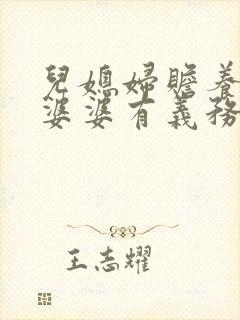 兒媳婦贍養
婆婆有義務
王志耀